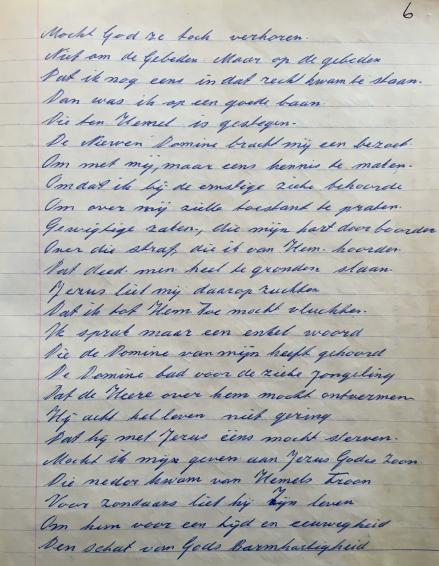 6
Mocht God ze toch verhoren.
Niet om de Gebeden. Maar op de gebeden
Dat ik nog eens in dat recht kwam te staan.
Dan was ik op een goede baan.
Die ten Hemel is gestegen.
De Nerven Domine bracht mij een bezoek.
Om met mij, maar eens kennis te maken.
Omdat ik bij de ernstige zieke behoorde
Om over mij zielle toestant te praten.
Gewigtige zaken, die mijn hart door boorden
Over die straf, die ik van Hem hoorden
Dat deed men heel te gronden slaan.
Jezus liet mij daarop zuchten
Dat ik tot Hem toe mocht vluchten.
Ik sprak maar een enkel woord
Die de Domine van mijn heeft gehoord
De Domine bad voor de zieke Jongeling
Dat de Heere over hem mocht ontvermen
Hij acht het leven niet gering
Dat hij met Jezus ééns mocht sterven.
Mocht ik mijn geven aan Jezus Gods Zoon.
Die neder kwam van Hemels Troon
Voor zondaars liet hij Zijn leven
Om hem voor een tijd en eeuwigheid
Den schat van Gods Barmhartigheid